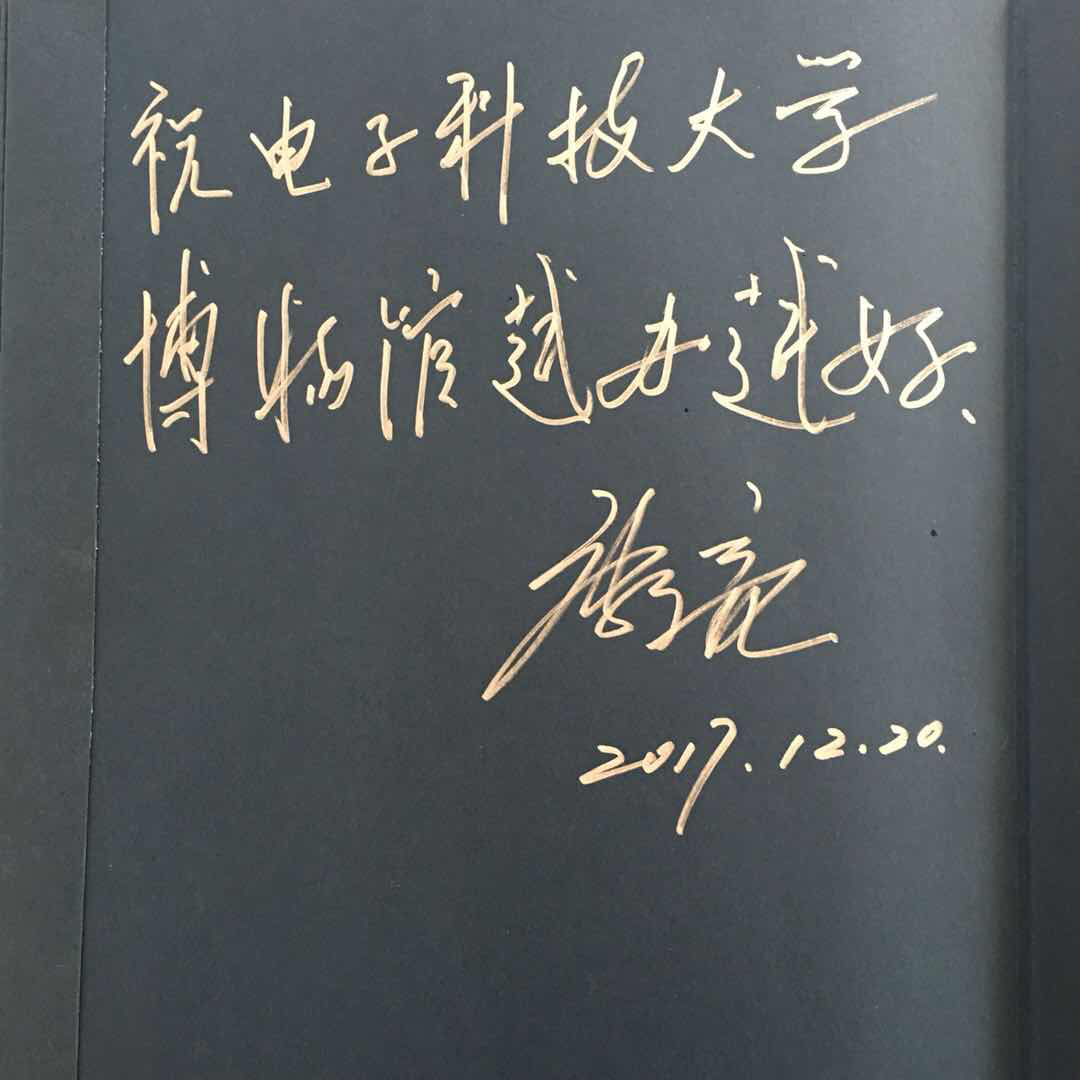 祝电子科技大学
博物馆越办越好、
2017.12.20.